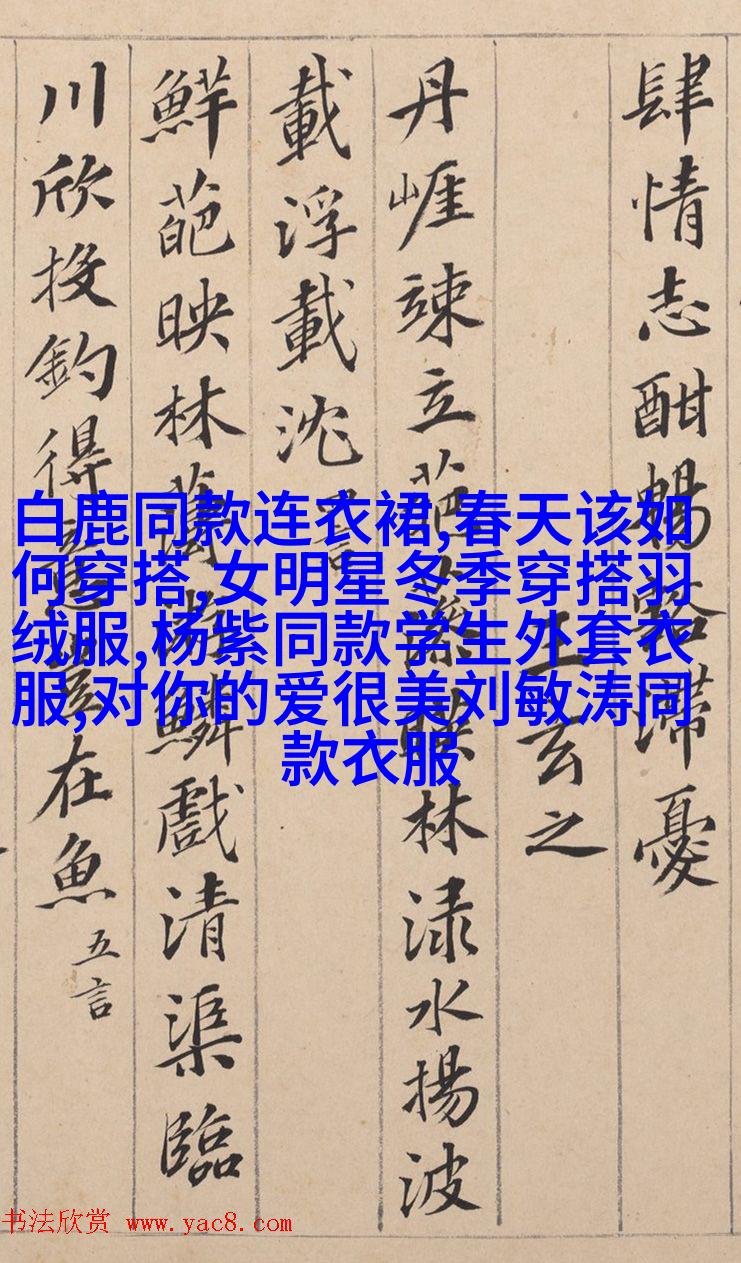 肆情志酣暢豁滯憂
王玄之
丹崕竦立葩藻暎林淥水揚波
載浮載沈
鮮葩映林薄游鱗戲清渠臨
川欣投釣得意豈在魚 五言
白鹿同款连衣裙,春天该如
何穿搭,女明星冬季穿搭羽
绒服,杨紫同款学生外套衣
服,对你的爱很美刘敏涛同
款衣服
书法欣赏 www.yac8.com